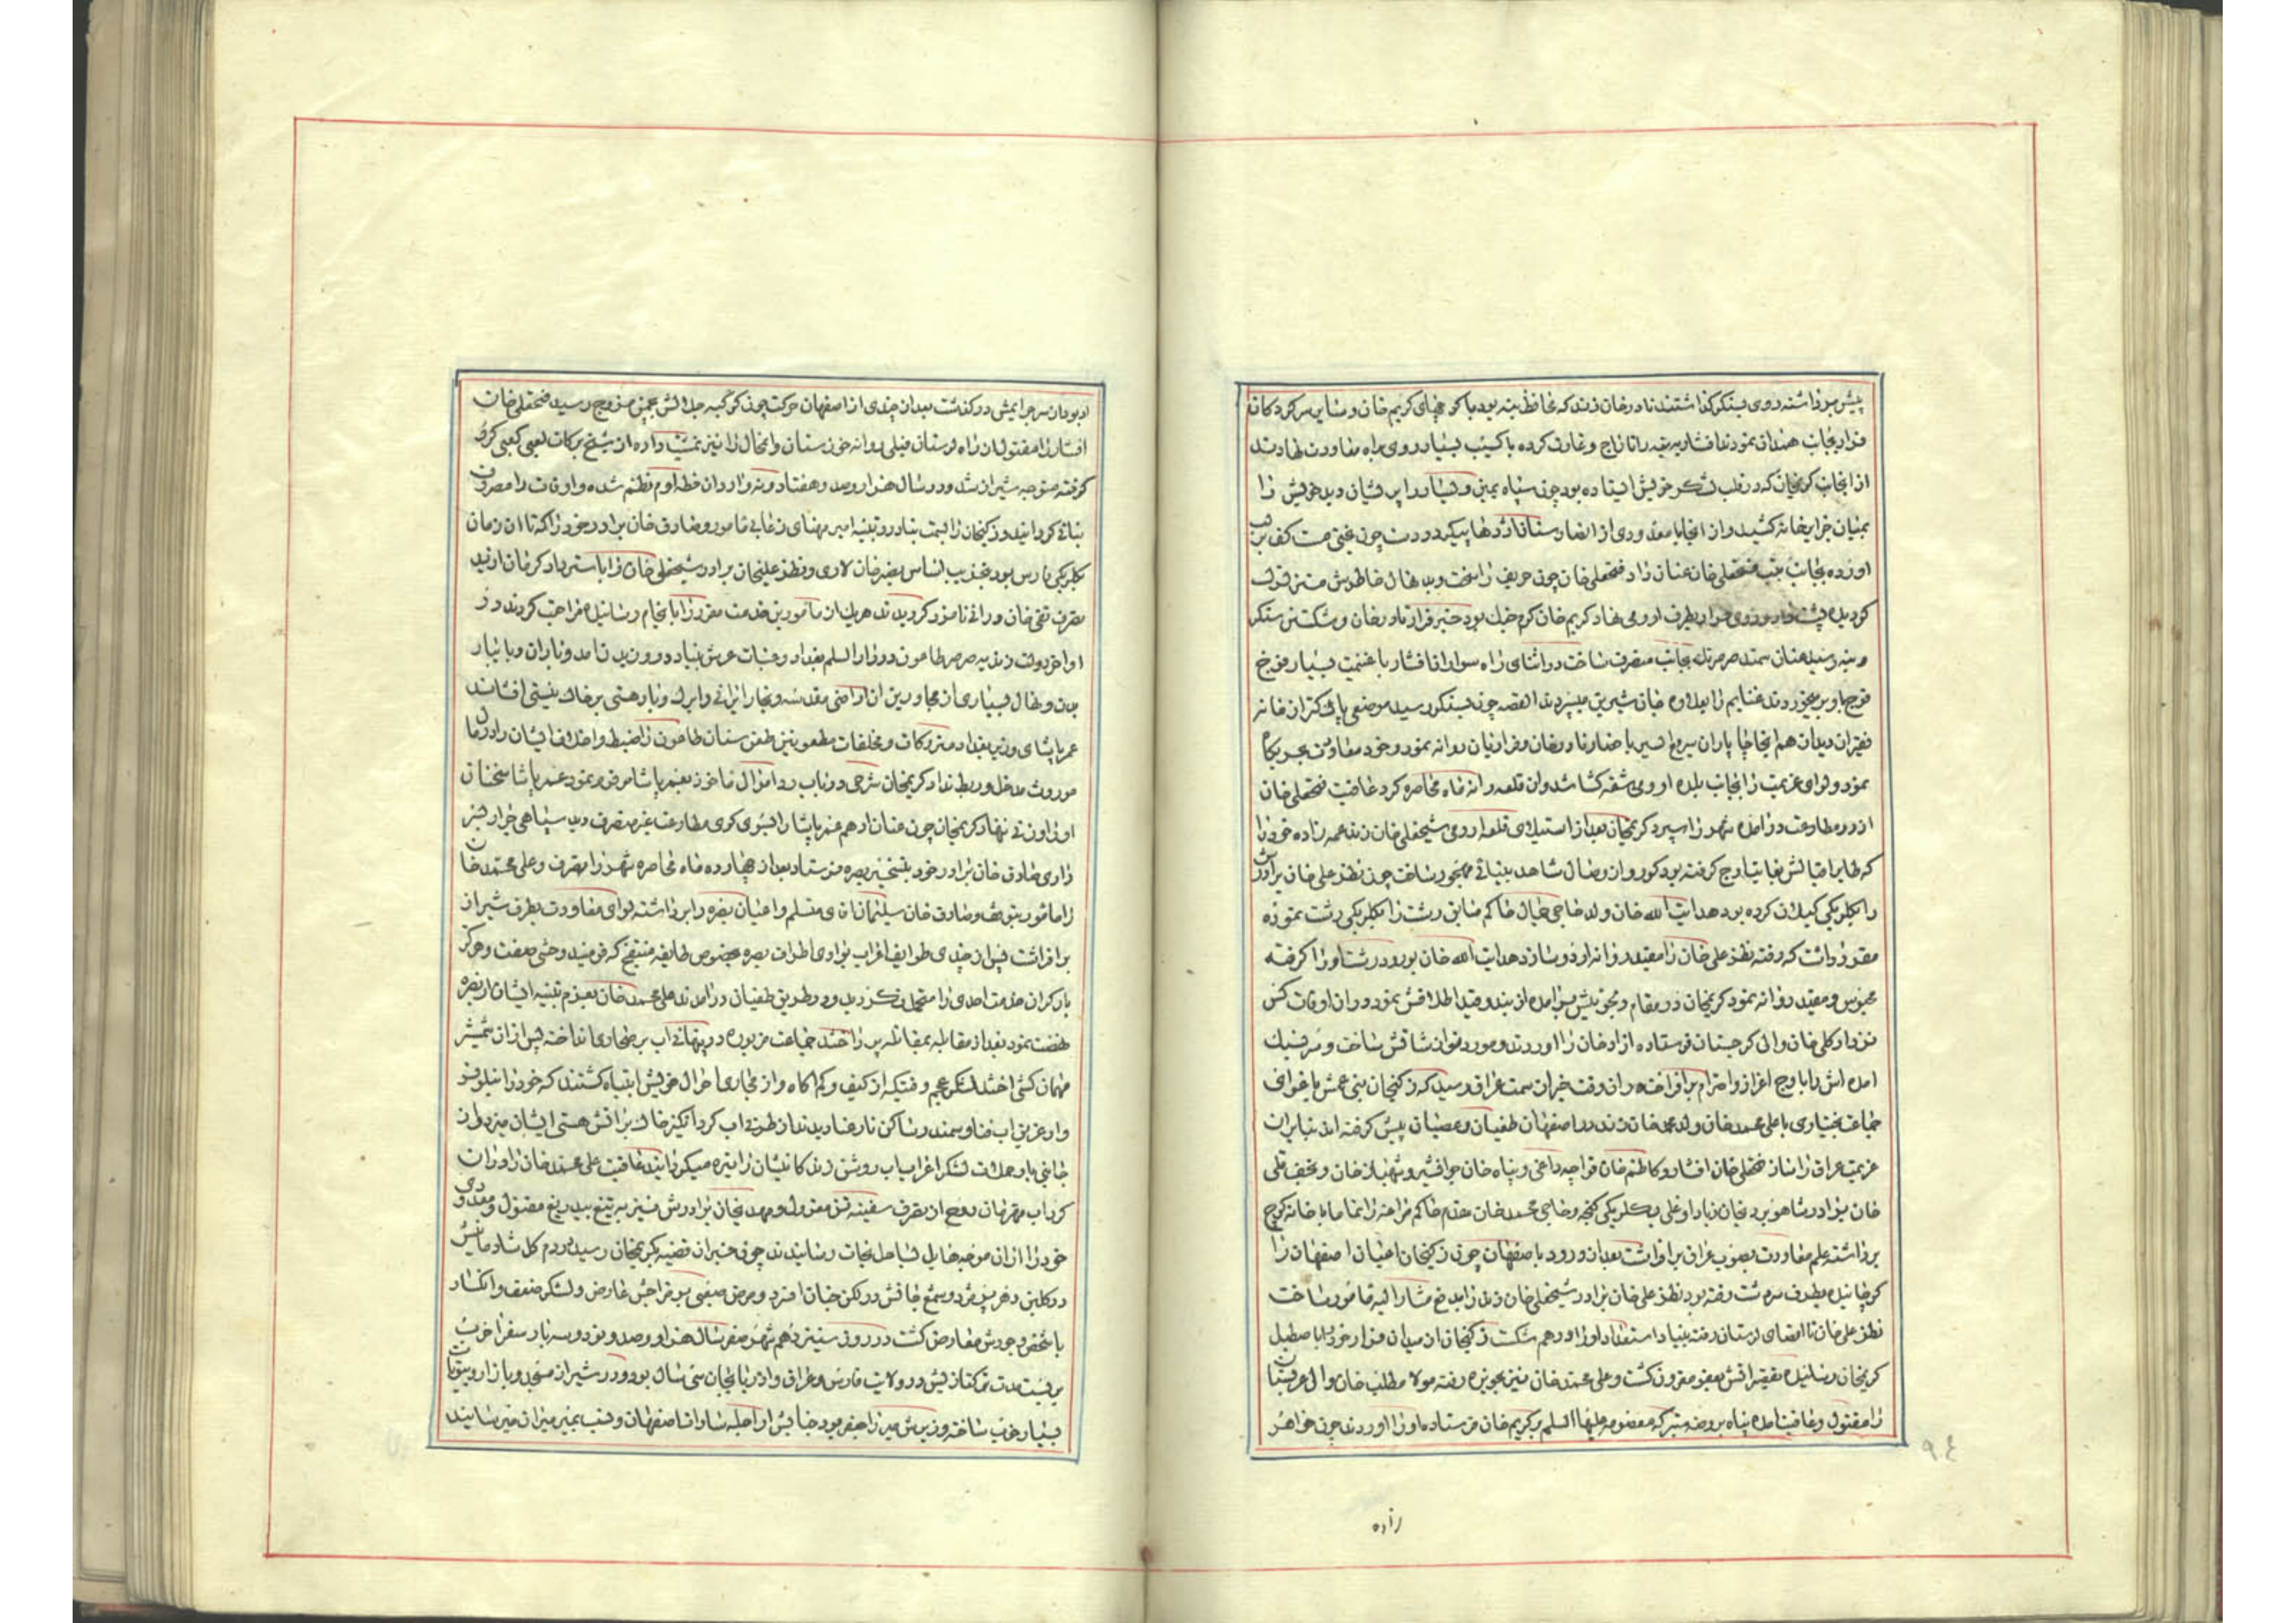 پیش برداشته روی بسنکر کذاشتند نادرخان زند که محافظ بنه بود با کوچهای کریم خان و سایر سرکردکان
فرار بجانب همدان نمودند افشاریه بقیه را تاراج و غارت کرده با کسیب بسیار روی براه معاودت نهادند
از انجانب کریمخان که در قلب لشکر خویش ایستاده بود چون سپاه یمین و یسار را پریشان دید خویش را
بمیان خرابخانه کشید و از انجا با معدودی از
اورده بجانب عقب فتحعلی خان عنان داد فتحعلی خان چون حریف را سخت وید
کردیده پشت داد و روی فرار بطرف ارومی نهاد کریم خان کرم جنک بود خبر فرار نادرخان و شکستن سنکر
و بنه رسید عنان سمند صرصر تک بجانب متصرف ساخت در اثنای راه سواران افشار با غنیمت بسیار فوج
فوج باو بر میخوردند غنایم را بعلاوه جان شیرین میسپردند القصه چون بسنکر رسید موضعی
نمود و لوای عزیمت را بجانب بلده ارومی شقه کشا شد و ان قلعه را نه ماه محاصره کرد عاقبت فتحعلی خان
از در مطاوعت در امده شهر را سپرد کریمخان بعد از استیلای قلعه ارومی شیخعلی خان زند عمه زاده خود را
که طایر اقبالش بغایت اوج کرفته بود کور و از وصال شاهد بینائی مهجور ساخت چون نظر علی خان برادرش
را بکلربکی کیلان کرده بود هدایت الله خان ولد حاجی جمال حاکم سابق رشت را بکلربکی رشت نموده
مقرر داشت که رفته نظر علی خان را مقید روانه اردو سازد هدایت الله خان بورود رشت او را کرفته
محبوس و مقید روانه نمود کریمخان در مقام دلجوئیش برامده از بند و قید اطلاقش نمود و در ان اوقات کس
نزد ارکلی خان والی کرجستان فرستاده ازاد خان را اوردند و مورد نوازشاتش ساخت و سر فتنه
امده اش را باوج اعزاز و احترام برافراخت در ان وقت خبر از سمت عراق رسید که زکیخان بنی عمش باغوای
جماعت بختیاری با علی محمد خان ولد محمد خان زند در اصفهان طغیان و عصیان پیش کرفته اند بنابران
عزیمت عراق را ساز فتحعلی خان افشار و کاظم خان قراچه داغی و پناه خان جوانشیر و شهباز خان و نجف قلی
خان برادر شاهویردیخان زیاد اوغلی بیکلربیکی کنجه و حاجی محمد خان مقدم حاکم مراغه را تماما با خانه کوچ
برداشته علم معاودت بصوب عراق برافراشت بعد از ورود باصفهان چون زکیخان اعیان اصفهان را
کوچانیده بطرف سردشت رفته بود نظر علی خان برادر شیخعلی خان زند را بدفع مشارالیه مامور ساخت
نظر علی خان تا اقصای لرستان رفته بنیاد استعداد او را درهم شکست زکیخان از میدان فرار خود را باصطبل
کریمخان رسانیده تقصیراتش بعفو مقرون کشت و علی محمد خان نیز بحویزه رفته مولا مطلب خان والی عربستان
را مقتول و عاقبت امده پناه بروضه متبرکه معصومه علیها السلم برد کریم خان فرستاده او را اوردند چون خواهر
زاده
او بود از سر جرایمش درکذشت بعد از چندی از اصفهان حرکت چون کوکبه جلالش بچمن مزوج رسید فتحعلی خان
افشار را مقتول از راه لرستان فیلی روانه خوزستان و انمحال را نیز تمشیت داده از شیخ برکات کعبی کرو
کرفته متوجه شیراز شد و در سال هزار و صد و هفتاد و نه وارد ان خطه ارم نظم شده و اوقات را مصروف
بنائے کردانید و زکیخان را بسمت بنادر و تنبیه امیر مهنای زعابی مامور و صادق خان برادر خود را که تا ان زمان
بکلربکی فارس بود بتخریب لناس نصیر خان لاری و نظر علیخان برادر شیخعلی خان را باسترداد کرمان از ید
تصرف تقی خان ورانی نامزد کردید ند هریک از مامورین خدمت مقرر را بانجام رسانیده مراجعت کردند در
اواخر دولت زندیه صرصر طاعون در دارالسلم بغداد و عتبات عرش بنیاد در وزیدن امد و باران وبا بنیاد
بدن و نهال بسیاری از مجاورین ان اراضی مقدسه و تجار ایرانے و ایرک و بار هستی بر خاک نیستی افشاند
عمر پاشای وزیر بغداد متروکات و مخلفات مطعونین طعن سنان طاعون را ضبط و اخلاف ایشان را در مال
موروث مدخل و ربط نداد کریمخان شرحی در باب رد اموال ماخوذ بعمر پاشا مرقوم نمود عمر پاشا سخنان
او را وزنے ننهاد کریمخان چون عنان ادهم عمر پاشا را بسوی کوی مطاوعت غیر متصرف دید سپاهی جرار بسر
داری صادق خان برادر خود بتسخیر بصره فرستاد بعد از چهارده ماه محاصره شهر را تصرف و علی محمد خان
را مامور بتوقف و صادق خان سلیمان اقای متسلم و اعیان بصره را برداشته لوای معاودت بطرف شیراز
برافراشت پس از چندی طوایف اعراب بوادی اطراف بصره بخصوص طایفه منتفج که قومیند وحشی صفت و هرکز
بار کران خدمت احدی را متحمل نکردیده در طریق طغیان درامدند علی محمد خان بعزم تنبیه ایشان از بصره
نهضت نمود بعد از مقابله بمقاتله پرداختند جماعت مزبوره در پنهانے اب بر صحاری انداخته پس از ان شمشیر
لشکر عجم وقتیکه از کیف و کم اکاه و از مجاری احوال خویش انتباه کشتند که خود را نیلوفر
وار غریق اب فنا و سمند رسا کن نار عنا دیدند از طرفے اب کرد انکیز خاک بر اتش هستی ایشان میزد و از
جانبی باد حملات لشکر اعراب اب روشن زند کانیشان را تیره میکردانید عاقبت علی محمد خان را در ان
کرداب قهر خان روح از تصرف سفینه تن معزول و مهدیخان برادرش نیز بتیغ بیدریغ مقتول و معدودی
خود را از ان موجه هایل بساحل نجات رسانیدند چون خبر ان قضیه بکریمخان رسید در دم کل شادمانیش
در کلبن دهر پژمرد و شمع جانش در لکن جنان افسرد و مرض صعبی بر مزاجش عارض و لشکر ضعف و انکسار
با شخص وجودش معارض کشت در روز سیزدهم شهر صفر سال هزار و صد و نود و سه بار سفر اخرت
بر بست مدت ترکتازیش در ولایت فارس و عراق و اذربایجان سی سال بود و در شیراز مسجد و بازار و بیوتات
بسیار خوب ساخته وزیرش میرزا جعفر بود جنابش از اجله سادات اصفهان و نسب بمیر میران میرسانید